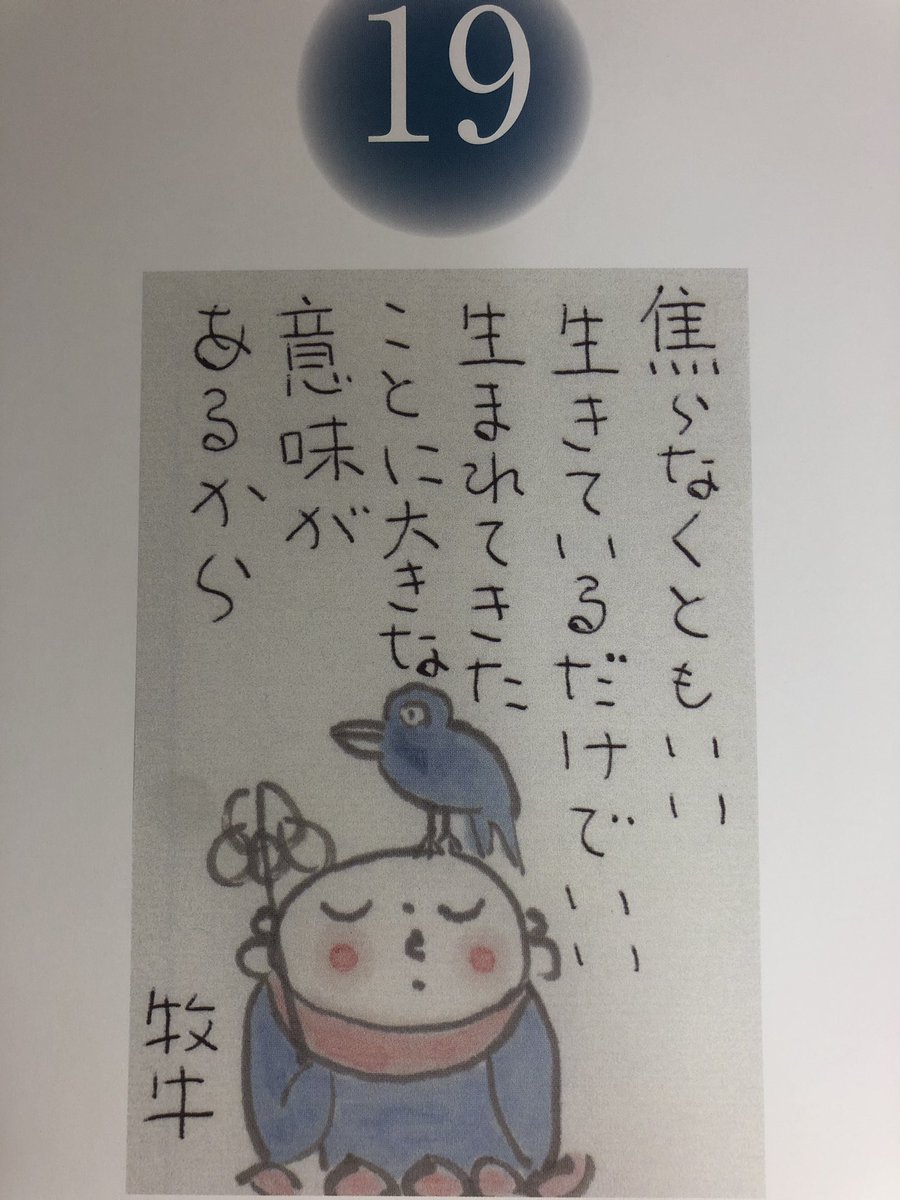 19
焦らなくともいい
生きているだけでいい
生まれてきた
ことに大きな
意味が
あるから
牧牛